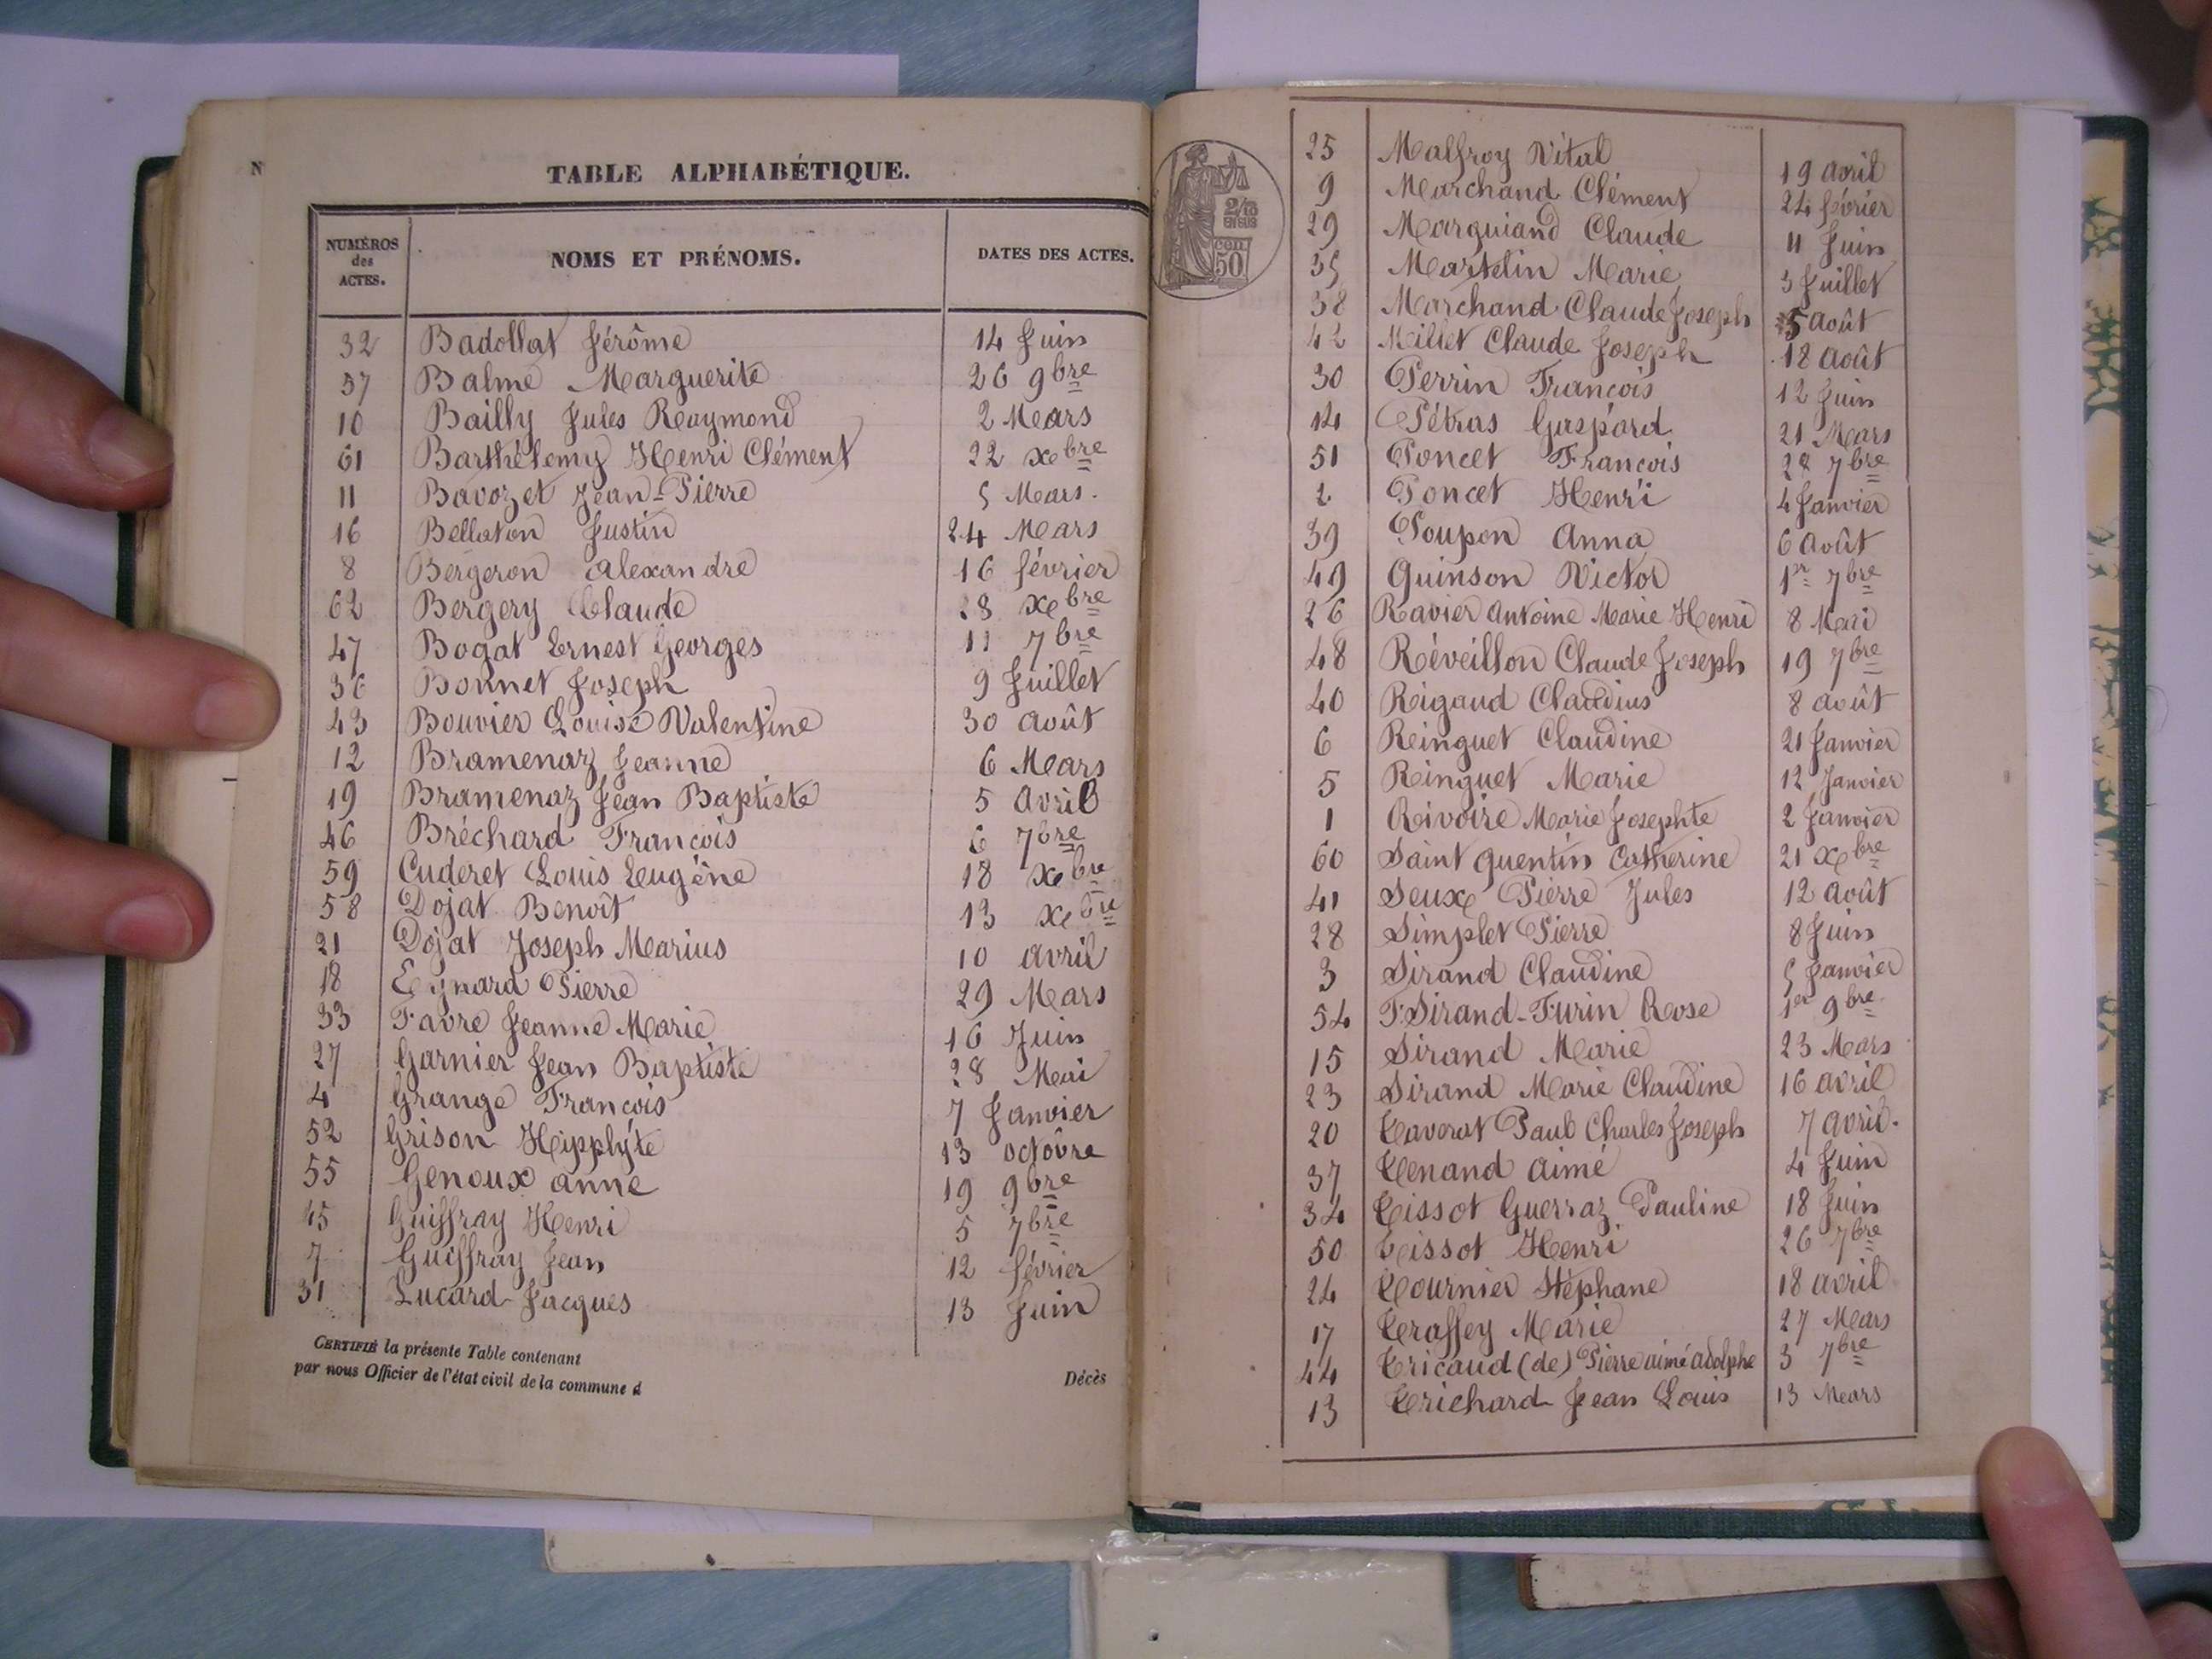 N
TABLE ALPHABÉTIQUE.
NUMÉROS des ACTES. NOMS ET PRÉNOMS. DATES DES ACTES.
32 Badollat Jérôme 14 Juin
57 Balme Marguerite 26 9bre
10 Bailly Jules Raymond 2 Mars
61 Barthélemy Henri Clément 22 xbre
11 Bavozet Jean-Pierre 5 Mars.
16 Bellaton Justin 24 Mars
8 Bergeron Alexandre 16 février
62 Bergery Claude 28 xbre
47 Bogat Ernest Georges 11 7bre
36 Bonnet Joseph 9 Juillet
43 Bouvier Louise Valentine 30 août
12 Bramenaz Jeanne 6 Mars
19 Bramenaz Jean Baptiste 5 Avril
46 Bréchard François 6 7bre
59 Cuderet Louis Eugène 18 xbre
58 Dojat Benoît 13 xbre
21 Dojat Joseph Marius 10 avril
18 Eynard Pierre 29 Mars
33 Favre Jeanne Marie 16 Juin
27 Garnier Jean Baptiste 28 Mai
4 Grange François 7 Janvier
52 Grison Hipplyte 13 octobre
55 Genoux anne 19 9bre
45 Guiffray Henri 5 7bre
7 Guiffray Jean 12 février
31 Lucard Jacques 13 Juin
CERTIFIÉ la présente Table contenant
par nous Officier de l'état civil de la commune d Décès
2/10 en sus
50 cen
25 Malfroy Vital 19 avril
9 Marchand Clément 24 février
29 Marguiand Claude 11 Juin
35 Martelin Marie 3 Juillet
38 Marchand Claude Joseph 5 août
42 Millet Claude Joseph 18 août
30 Perrin François 12 Juin
14 Pétras Gaspard 21 Mars
51 Poncet François 28 7bre
2 Poncet Henri 4 Janvier
39 Poupon Anna 6 Août
49 Quinson Victor 1er 7bre
26 Ravier Antoine Marie Henri 8 Mai
48 Réveillon Claude Joseph 19 7bre
40 Rigaud Claudius 8 août
6 Ringuet Claudine 21 Janvier
5 Ringuet Marie 12 Janvier
1 Rivoire Marie Josephte 2 Janvier
60 Saint Quentin Catherine 21 xbre
41 Seux Pierre Jules 12 août
28 Simplet Pierre 8 Juin
3 Sirand Claudine 5 Janvier
54 F. Sirand-Turin Rose 1er 9bre
15 Sirand Marie 23 Mars
23 Sirand Marie Claudine 16 avril
20 Tavorat Paul Charles Joseph 7 avril.
37 Tenand Aimé 4 Juin
34 Tissot Guerraz Pauline 18 Juin
50 Tissot Henri 26 7bre
24 Tournier Stéphane 18 avril
17 Traffey Marie 27 Mars
44 Tricaud (de) Pierre aimé adolphe 3 7bre
13 Trichard Jean Louis 13 Mars